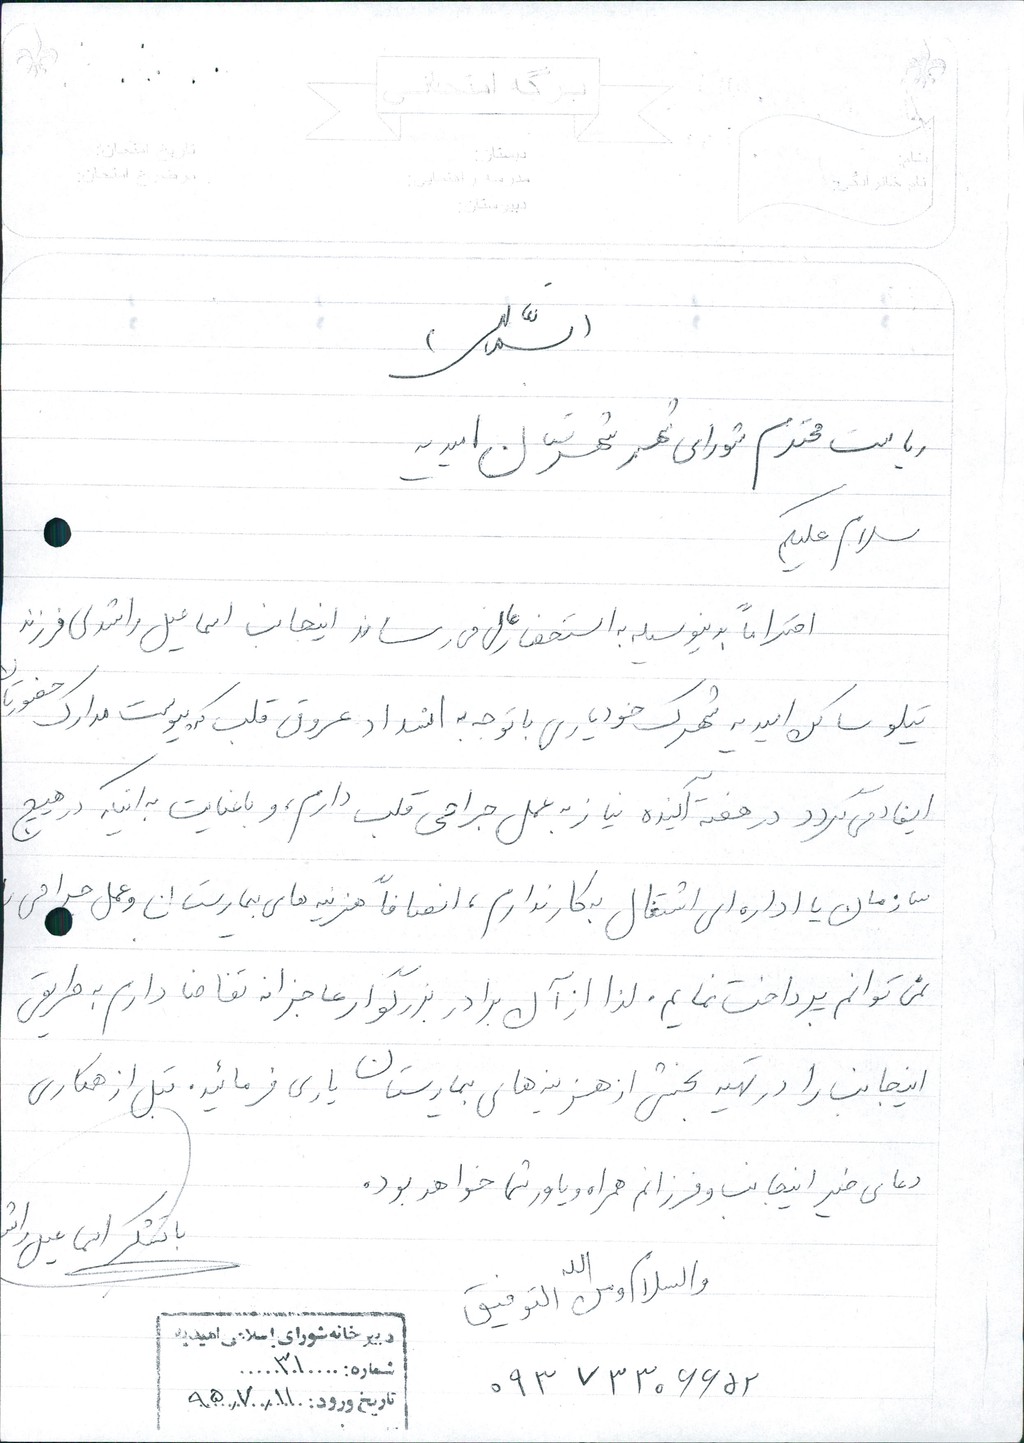 برگه امتحانی
نام:
نام خانوادگی:
دبستان:
مدرسه راهنمایی:
دبیرستان:
تاریخ امتحان:
موضوع امتحان:
(بسمه‌تعالی)
ریاست محترم شورای شهر شهرستان امیدیه
سلام علیکم
احتراماً بدینوسیله به استحضار عالی می رساند اینجانب اسماعیل راشدی فرزند
ساکن امیدیه شهرک خودیاری با توجه به انسداد عروق قلب که پیوست مدارک حضورتان
ایفاد می گردد در هفته آینده نیاز به عمل جراحی قلب دارم، و با عنایت به اینکه در هیچ
سازمان یا اداره ای اشتغال به کار ندارم، انصافاً هزینه های بیمارستان و عمل جراحی را
نمی توانم پرداخت نمایم. لذا از آن برادر بزرگوار عاجزانه تقاضا دارم به طریقی
اینجانب را در تهیه بخشی از هزینه های بیمارستان یاری فرمائید. قبل از همکاری
دعای خیر اینجانب و فرزندانم همراه و یاور شما خواهد بود.
با تشکر اسماعیل
والسلام و من الله التوفیق
۰۹۳۷۳۳۰۶۶۵۲
دبیرخانه شورای اسلامی امیدیه
شماره: ۳۱۰
تاریخ ورود: ۹۵/۷/۱۱